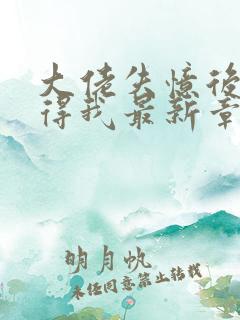 大佬失憶後
得我最新章
明月帆
未经同意禁止转载